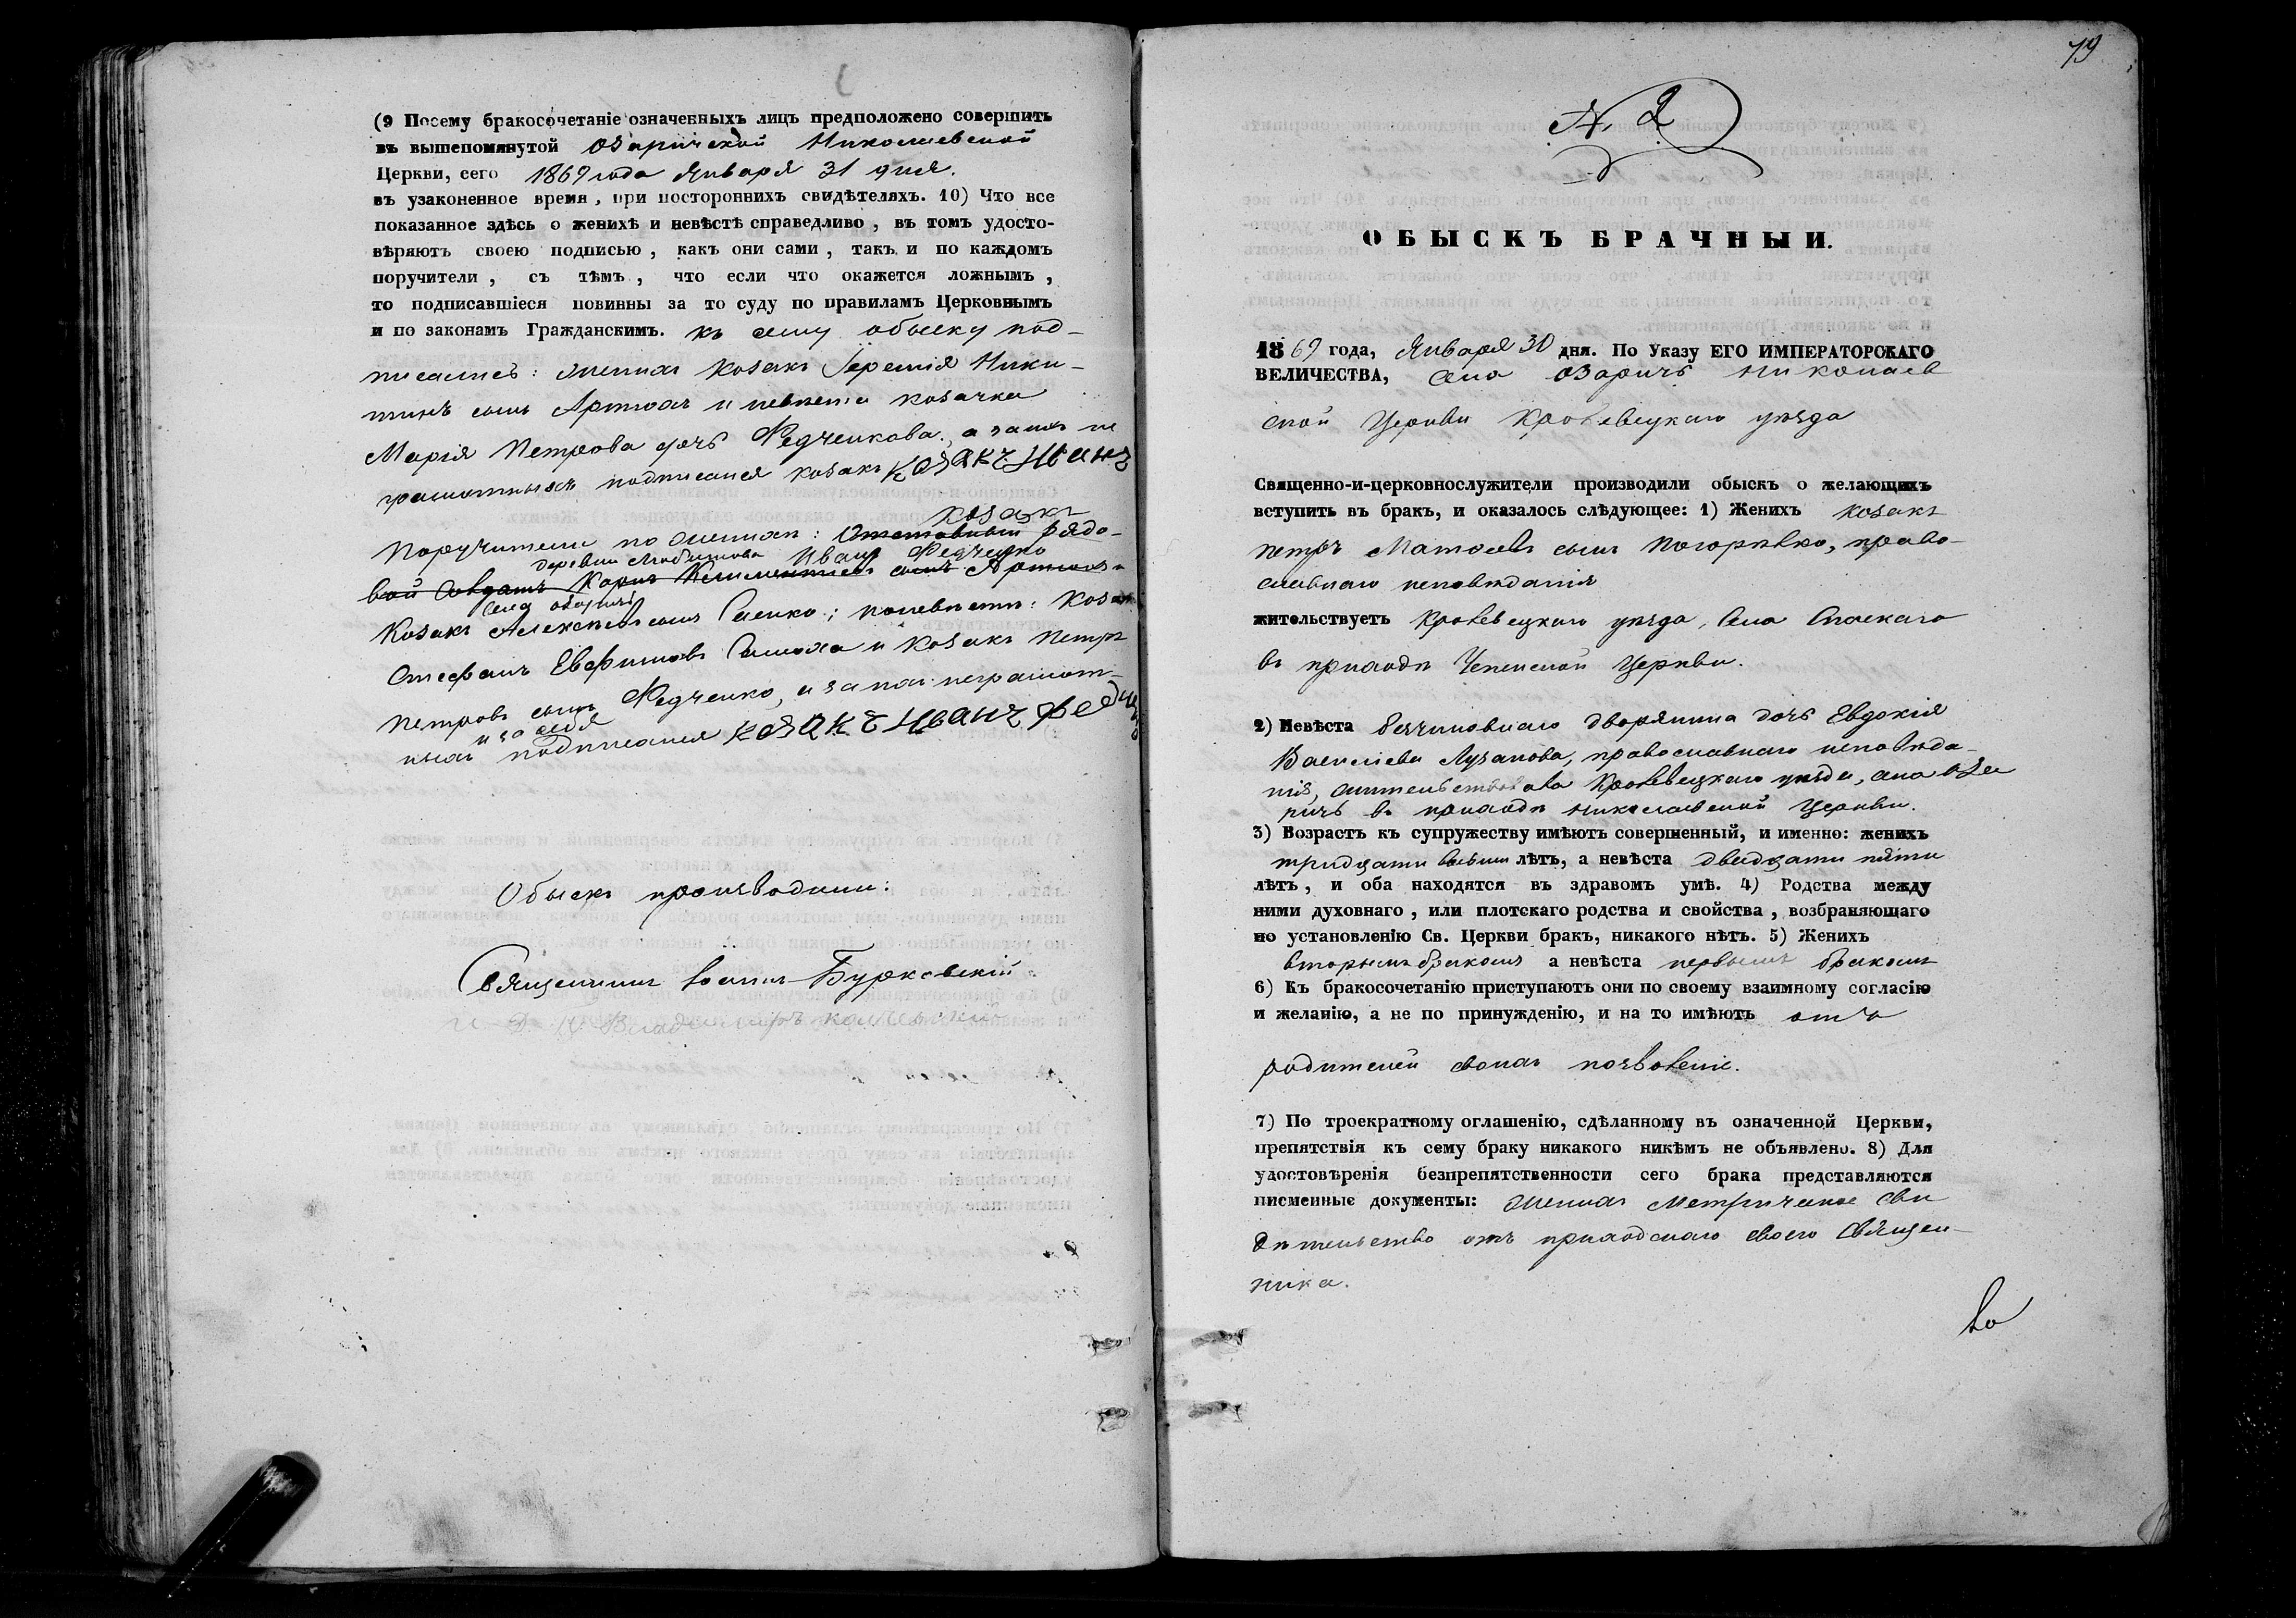 (9 Посему бракосочетаніе означенныхъ лицъ предположено совершить
въ вышепомянутой Озарической Николаевской
Церкви, сего 1869 года Января 31 дня.
въ узаконенное время, при постороннихъ свидѣтеляхъ. 10) Что все
показанное здѣсь о женихѣ и невѣстѣ справедливо, въ томъ удосто-
вѣряютъ своею подписью, какъ они сами, такъ и по каждомъ
поручители, съ тѣмъ, что если что окажется ложнымъ,
то подписавшіеся повинны за то суду по правиламъ Церковнымъ
и по законамъ Гражданскимъ. къ сему обыску под-
писались: женихъ козакъ Іеремія Ники-
тинъ сынъ Артюхъ и невѣста козачка
Марія Петрова дочь Федченкова, а за нихъ не
грамотныхъ подписался козакъ козакъ Иванъ
козакъ
Поручители по женихѣ: Отставный рядо-
деревни Любитова Иванъ Федченко
вой Солдатъ Карпъ Климентьевъ сынъ Артюхъ и
села Озаричъ
Козакъ Алексѣевъ сынъ Саенко; по невѣстѣ: Козакъ
Стефанъ Евфимовъ Самоха и козакъ Петръ
Петровъ сынъ Федченко, а за нихъ неграмот-
и за себя
ныхъ подписался козакъ Иванъ Федч
Обыскъ производили:
Священникъ Іоаннъ Бурковскій
и Владиміръ
79
N. 2
ОБЫСКЪ БРАЧНЫЙ.
1869 года, Января 30 дня. По Указу ЕГО ИМПЕРАТОРСКАГО
ВЕЛИЧЕСТВА, села Озаричъ Николаев
ской Церкви Кролевецкаго уѣзда
Священно-и-церковнослужители производили обыскъ о желающихъ
вступить въ бракъ, и оказалось слѣдующее: 1) Женихъ козакъ
Петръ Матѳеевъ сынъ Погорѣлко, право-
славнаго исповѣданія
жительствуетъ Кролевецкаго уѣзда, села Спаскаго
въ приходѣ Успенской Церкви.
2) Невѣста безчиновнаго дворянина дочь Евдокія
Васильева Лузанова, православнаго исповѣда-
нія, жительствовала Кролевецкаго уѣзда, села Оза
ричъ въ приходѣ Николаевской Церкви.
3) Возрастъ къ супружеству имѣютъ совершенный, и именно: женихъ
тридцати восьми лѣтъ, а невѣста двадцати пяти
лѣтъ, и оба находятся въ здравомъ умѣ. 4) Родства между
ними духовнаго, или плотскаго родства и свойства, возбраняющаго
по установленію Св. Церкви бракъ, никакого нѣтъ. 5) Женихъ
вторымъ бракомъ а невѣста первымъ бракомъ
6) Къ бракосочетанію приступаютъ они по своему взаимному согласію
и желанію, а не по принужденію, и на то имѣютъ отъ
родителей своихъ позволеніе.
7) По троекратному оглашенію, сдѣланному въ означенной Церкви,
препятствія къ сему браку никакого никѣмъ не объявлено. 8) Для
удостовѣренія безпрепятственности сего брака представляются
писменные документы: женихъ Метрическое сви
дѣтельство отъ приходскаго своего Священ-
ника.
во